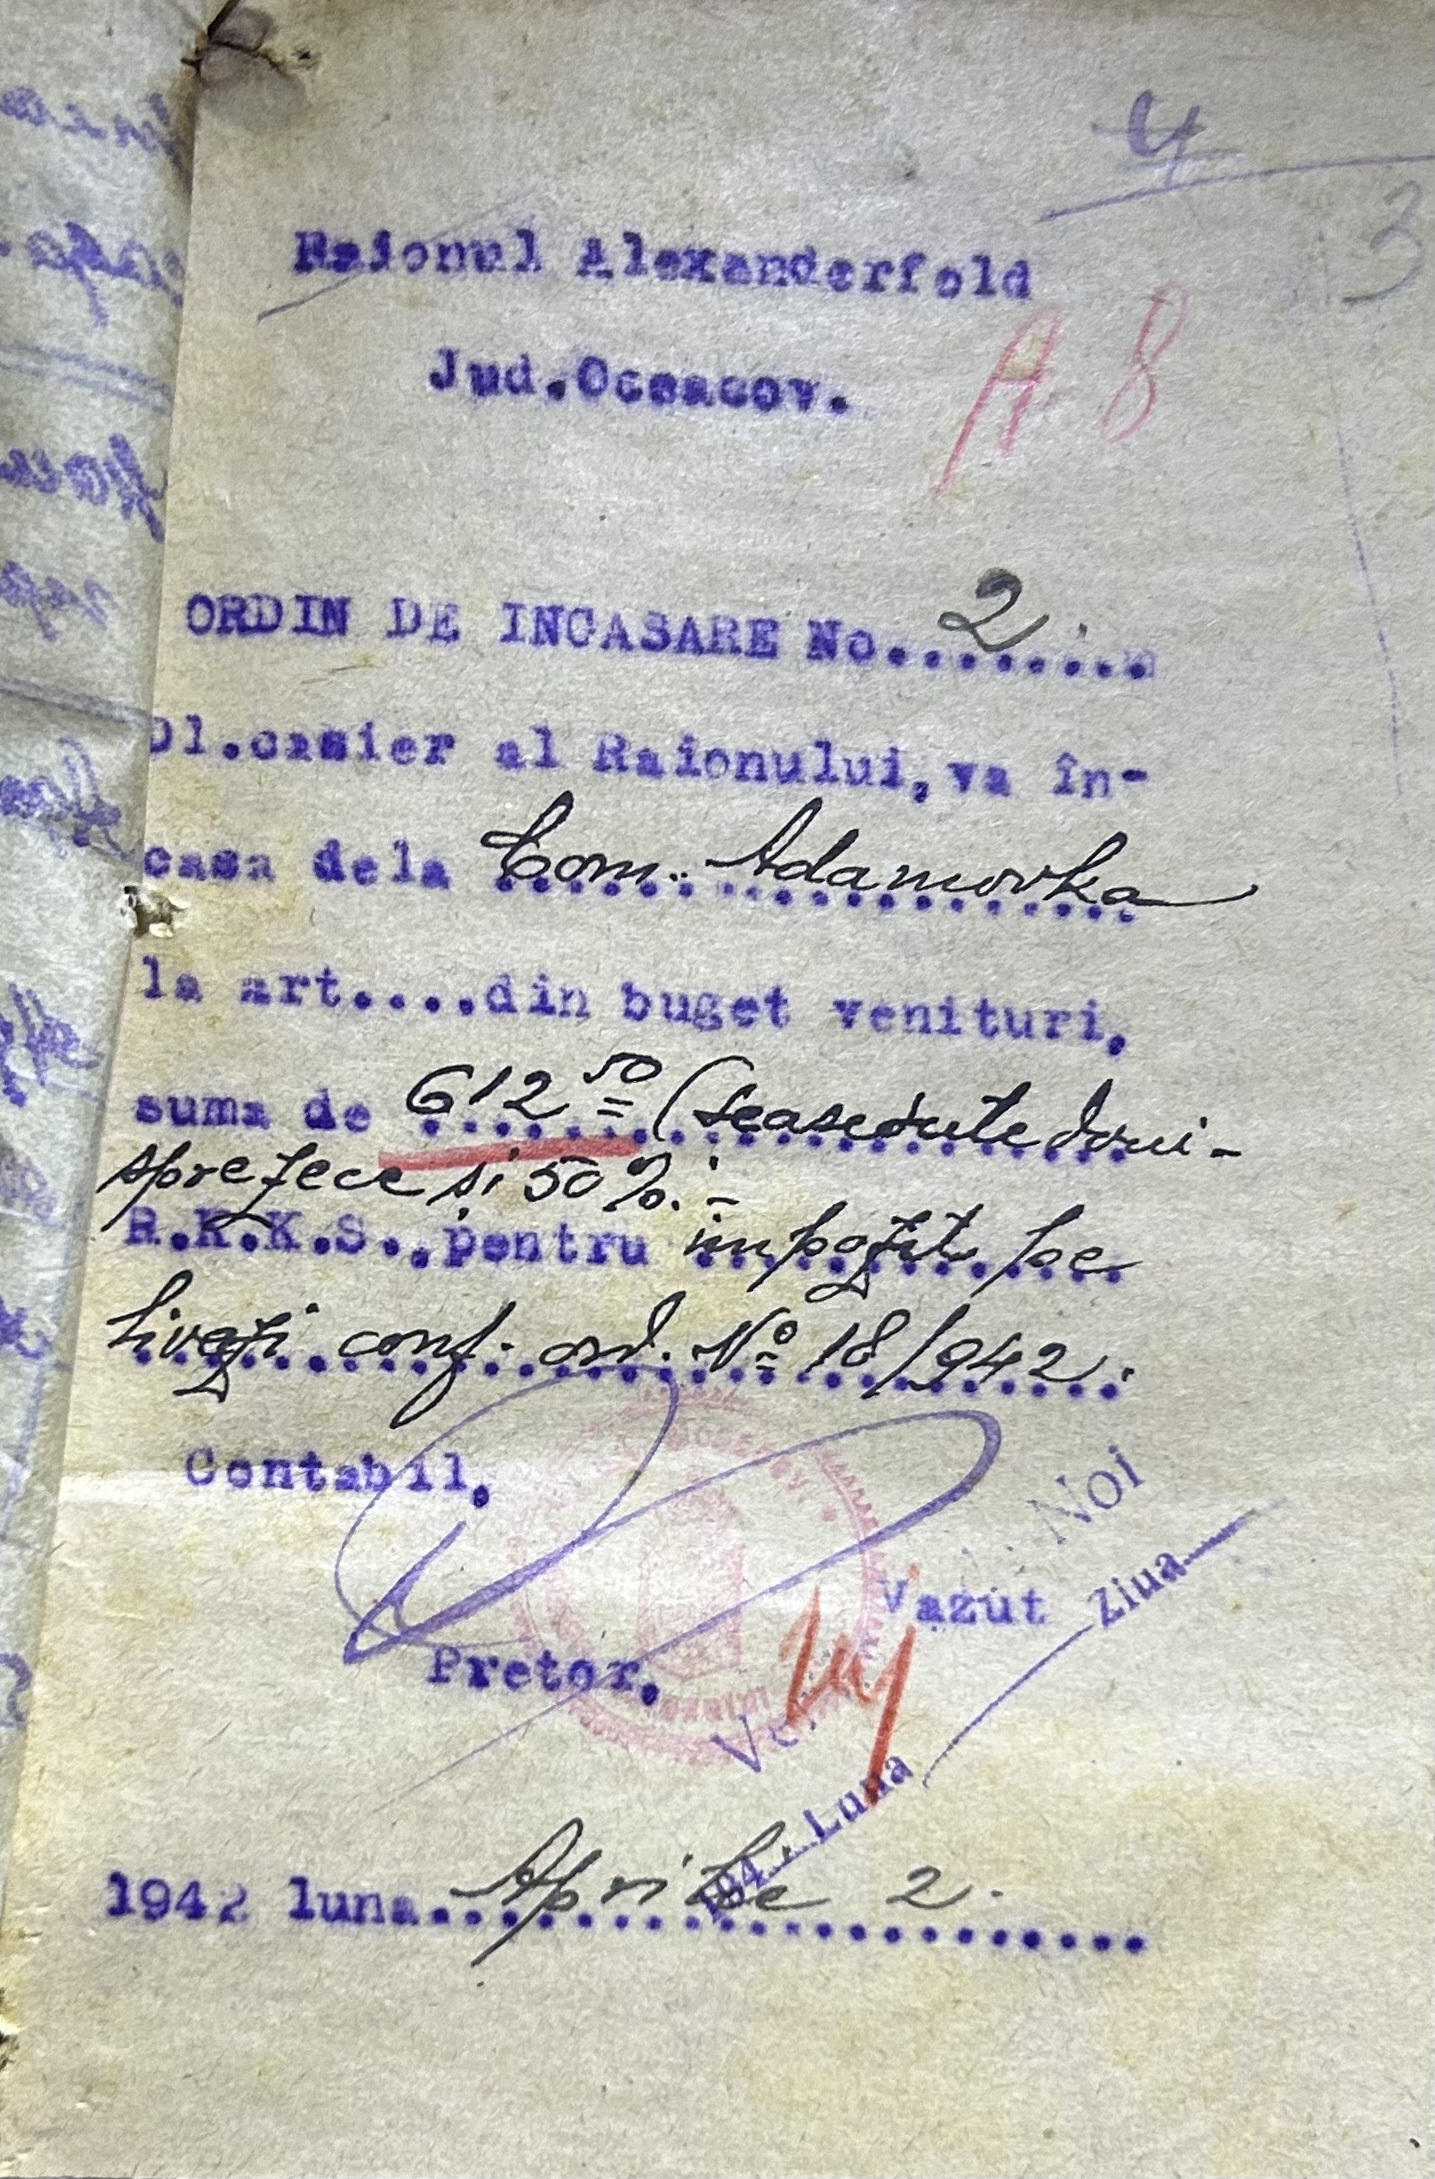 4
3
Raionul Alexanderfeld
Jud.Oceacov.
A. 8
ORDIN DE INCASARE No......... 2.
Dl.casier al Raionului,va în-
casa dela Com. Adamovka
la art....din buget venituri,
suma de 612 50 = (seasesute doui-
sprezece și 50%. -
R.K.K.S.,pentru impozit pe
livezi conf. ord. No 18/942.
Contabil,
Noi
Vazut
Ziua
Pretor,
Luna
194
1942 luna Aprilie 2.